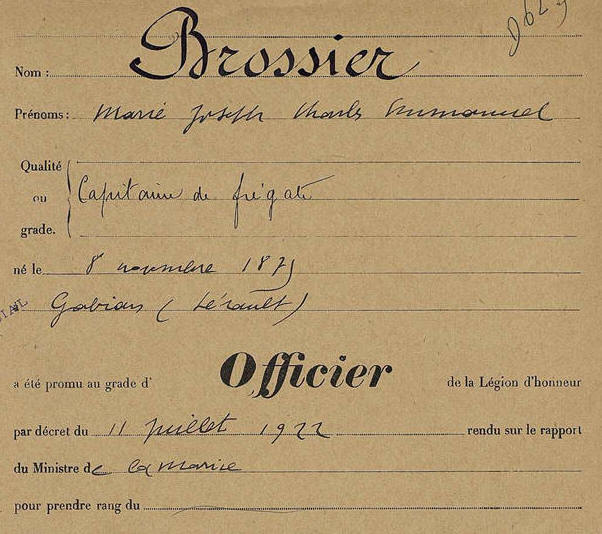 Nom : Brossier
Prénoms : Marie Joseph Charles Emmanuel
Qualité
ou
grade.
Capitaine de frégate
né le 8 novembre 1875
Gabian (Hérault)
a été promu au grade d' Officier de la Légion d'honneur
par décret du 11 juillet 1922 rendu sur le rapport
du Ministre de la Marine
pour prendre rang du